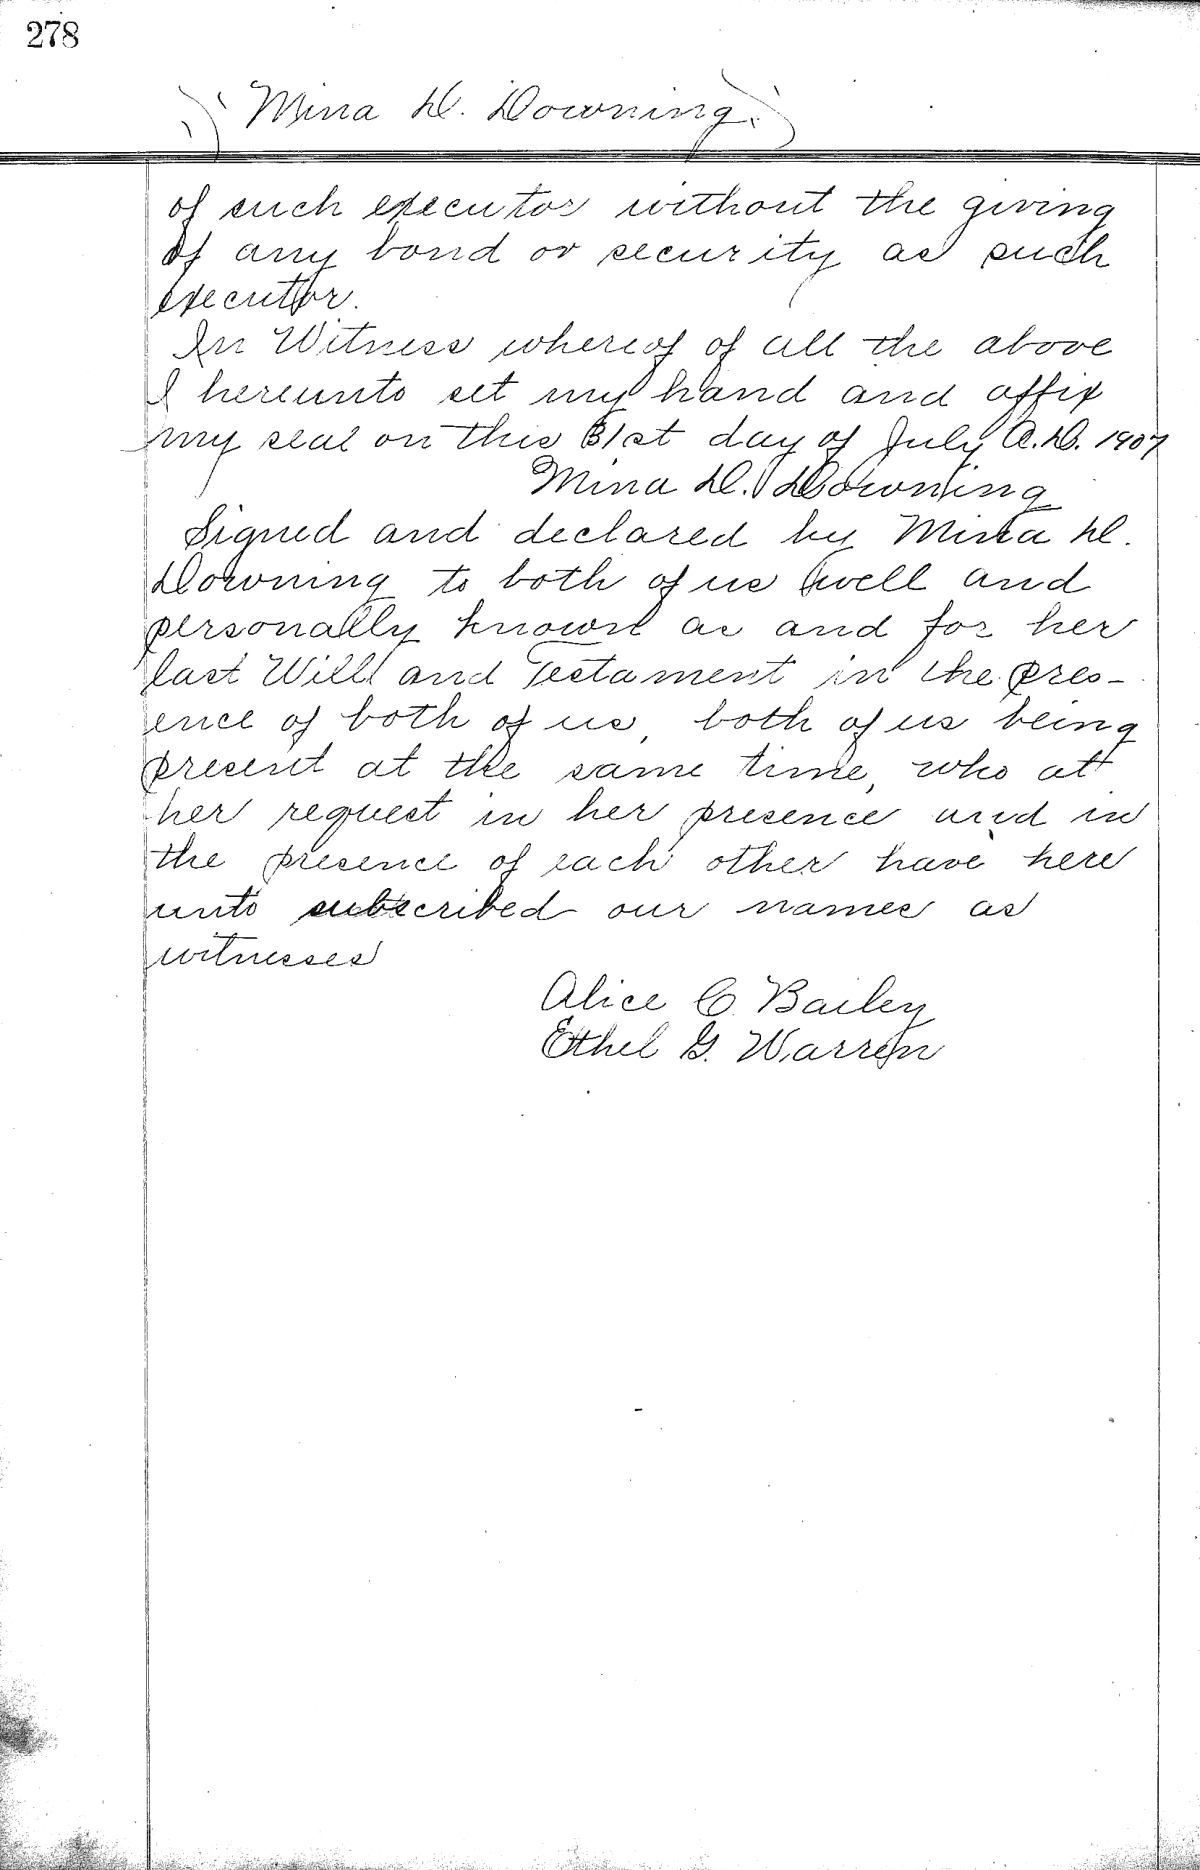 278
Mina D. Downing.
of such executor without the giving
of any bond or security as such
executor.
In Witness whereof of all the above
I hereunto set my hand and affix
my seal on this 31st day of July A.D. 1907
Mina D. Downing
Signed and declared by Mina D.
Downing to both of us well and
personally known as and for her
last Will and Testament in the pres-
ence of both of us, both of us being
present at the same time, who at
her request in her presence and in
the presence of each other have here
unto subscribed our names as
witnesses
Alice C. Bailey
Ethel G. Warren